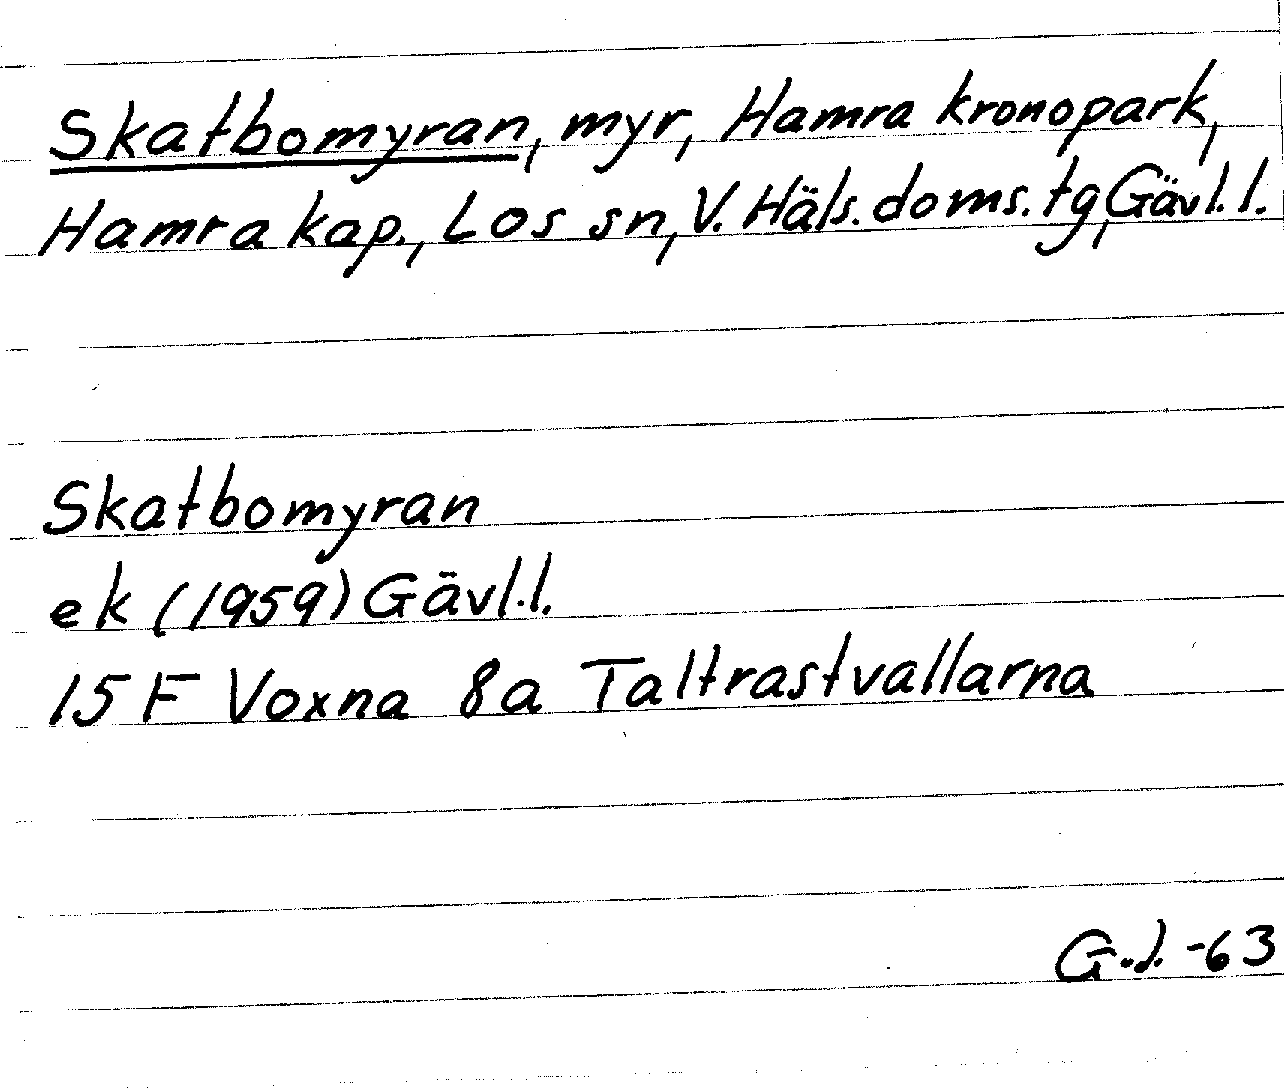 Skatbomyran, myr, Hamra kronopark,
Hamra kap., Los sn, V. Häls. doms. tg, Gävl. l.
Skatbomyran
ek (1959) Gävl. l.
15 F Voxna 8a Taltrastvallarna
G. J. -63